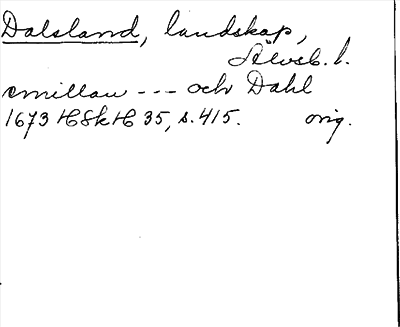 Dalsland, landskap,
Älvsb. l.
emillan --- och Dahl
1673 HSkH 35, s. 415. orig.